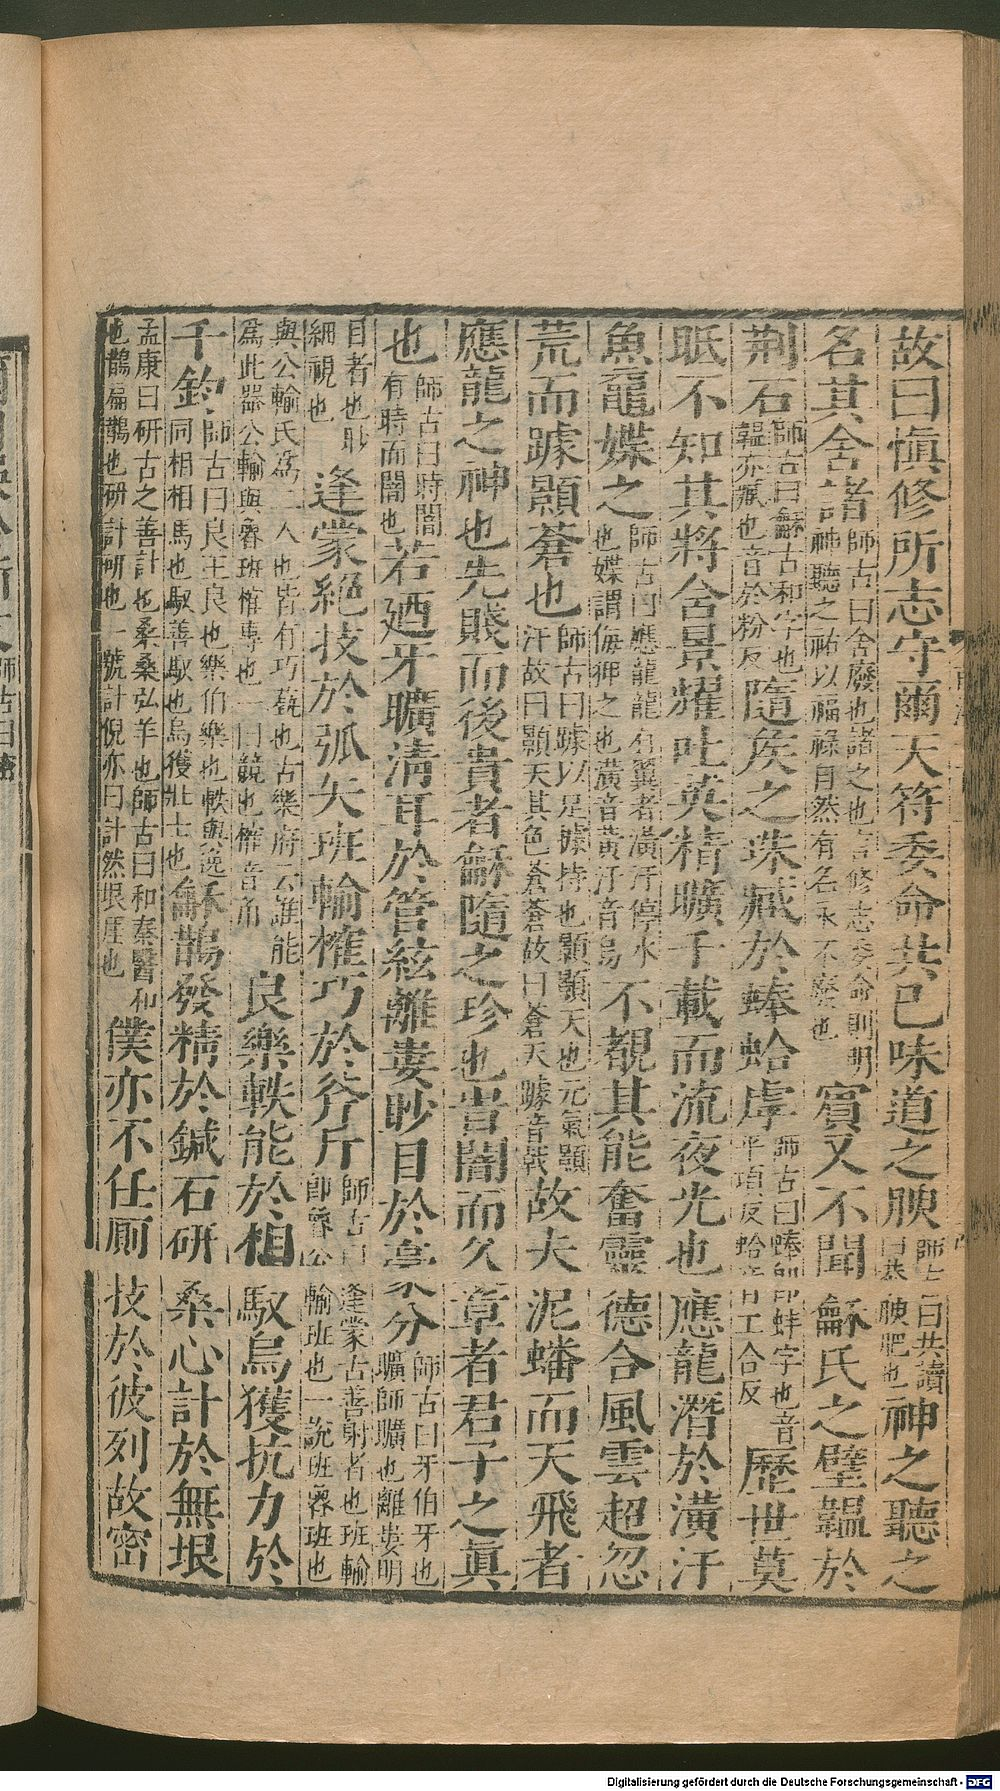 故曰愼修所志守爾天符委命共已味道之腴師古曰共讀曰恭腴肥也神之聽之
名其舍諸師古曰舍廢也諸之也言修志委命則明神聽之祐以福祿自然有名永不廢也賓又不聞龢氏之璧韞於
荆石師古曰龢古和字也韞亦藏也音於粉反隨矦之珠藏於蜯蛤虖師古曰蜯即蚌字也音平項反蛤音工合反歷世莫
眂不知其將含景耀吐英精曠千載而流夜光也應龍潛於潢汙
魚黿媟之師古曰應龍龍有翼者潢汙停水也媟謂侮狎之也潢音黃汙音烏不覩其能奮靈德合風雲超忽
荒而躆顥蒼也師古曰躆以足據持也顥顥天也元氣顥汗故曰顥天其色蒼蒼故曰蒼天躆音戟故夫泥蟠而天飛者
應龍之神也先賤而後貴者龢隨之珍也旹闇而久章者君子之眞
也師古曰時闇有時而闇也若廼牙曠淸耳於管絃離婁眇目於豪分師古曰牙伯牙也曠師曠也離婁明
目者也眇細視也逢蒙絕技於弧矢班輸榷巧於斧斤師古曰逢蒙古善射者也班輸即魯公輸班也一說班魯班也
與公輸氏爲二人也皆有巧藝也古樂府云誰能爲此器公輸與魯班榷專也一曰競也榷音角良樂軼能於相馭烏獲抗力於
千鈞師古曰良王良也樂伯樂也軼與逸同相相馬也馭善馭也烏獲壯士也龢鵲發精於鍼石研桑心計於無垠
孟康曰研古之善計也桑桑弘羊也師古曰和秦醫和也鵲扁鵲也研計研也一號計倪亦曰計然垠厓也僕亦不任厠技於彼列故密
師古曰密
Digitalisierung gefördert durch die Deutsche Forschungsgemeinschaft - DFG